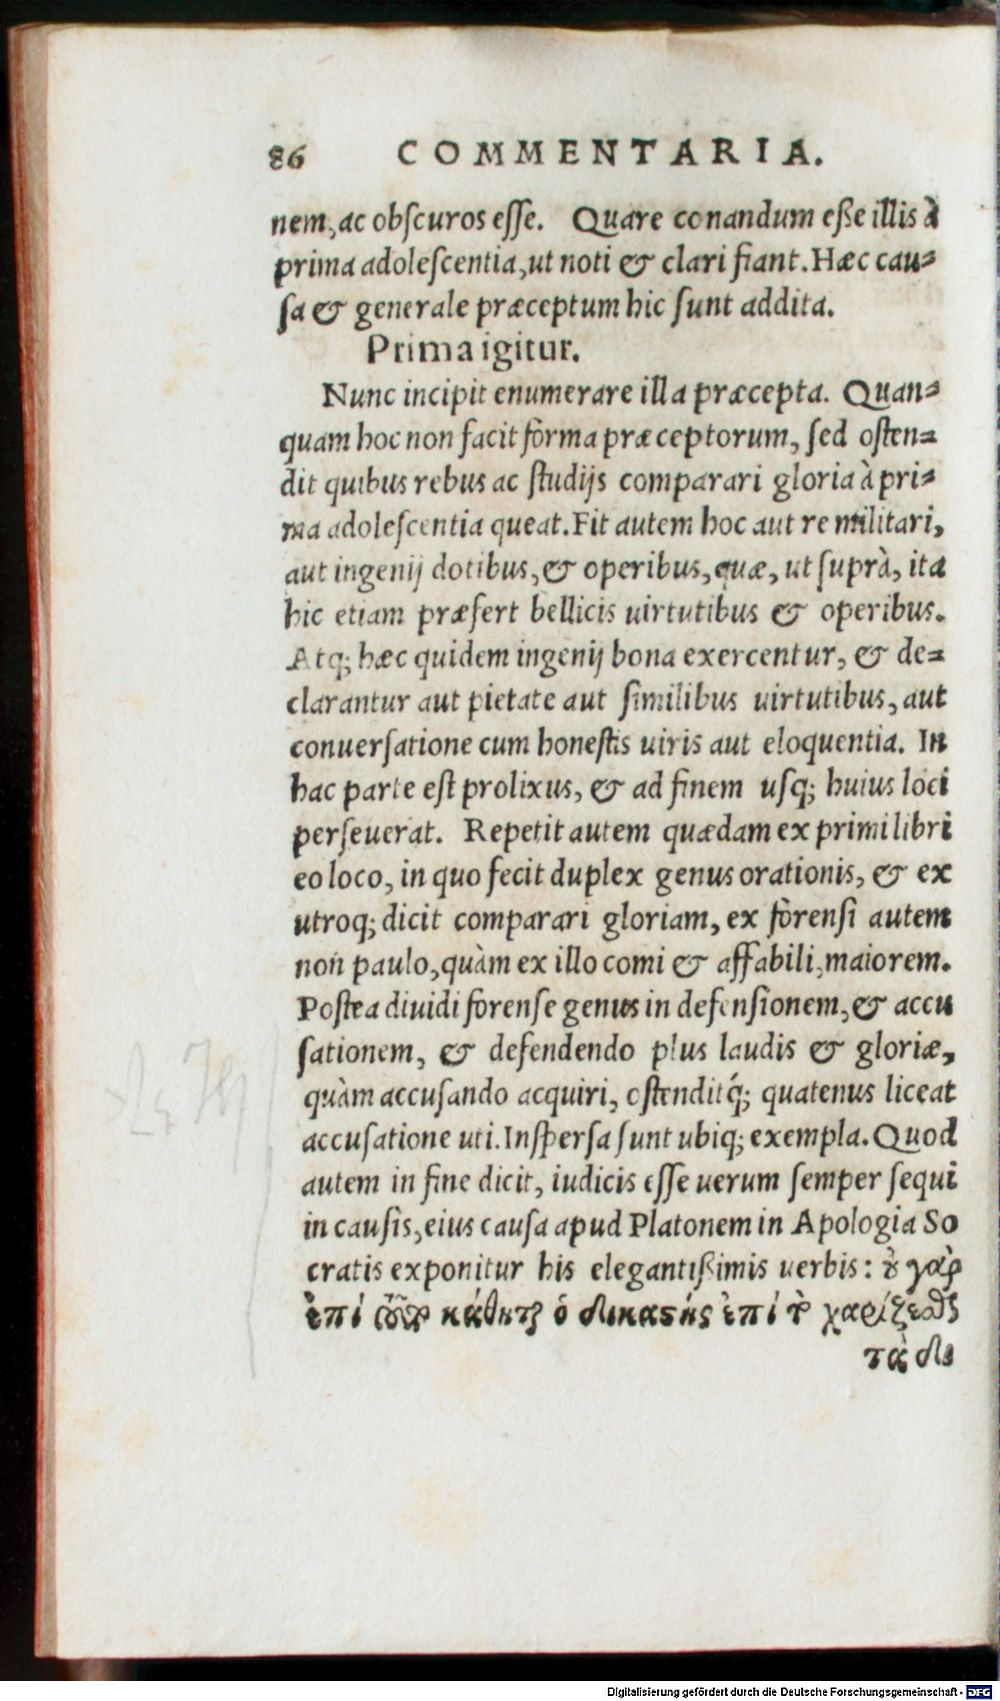 86 COMMENTARIA.
nem, ac obſcuros eſſe. Quare conandum eſße illis à
prima adoleſcentia, ut noti & clari fiant. Hæc cau-
ſa & generale præceptum hic ſunt addita.
Prima igitur.
Nunc incipit enumerare illa præcepta. Quan-
quam hoc non facit forma præceptorum, ſed oſten-
dit quibus rebus ac ſtudijs comparari gloria à pri-
ma adoleſcentia queat. Fit autem hoc aut re militari,
aut ingenij dotibus, & operibus, quæ, ut ſuprà, ita
hic etiam præfert bellicis uirtutibus & operibus.
Atq; hæc quidem ingenij bona exercentur, & de-
clarantur aut pietate aut ſimilibus uirtutibus, aut
conuerſatione cum honeſtis uiris aut eloquentia. In
hac parte eſt prolixus, & ad finem uſq; huius loci
perſeuerat. Repetit autem quædam ex primi libri
eo loco, in quo fecit duplex genus orationis, & ex
utroq; dicit comparari gloriam, ex forenſi autem
non paulo, quàm ex illo comi & affabili, maiorem.
Poſtea diuidi forenſe genus in defenſionem, & accu
ſationem, & defendendo plus laudis & gloriæ,
quàm accuſando acquiri, oſtenditq́; quatenus liceat
accuſatione uti. Inſperſa ſunt ubiq; exempla. Quod
autem in fine dicit, iudicis eſſe uerum ſemper ſequi
in cauſis, eius cauſa apud Platonem in Apologia So
cratis exponitur his elegantiſßimis uerbis: ȣ γὰρ
ἐπὶ τούτῳ κάθηται ὁ δικαϛὴς ἐπὶ τῷ χαρίζεσθαι
τὰ δι